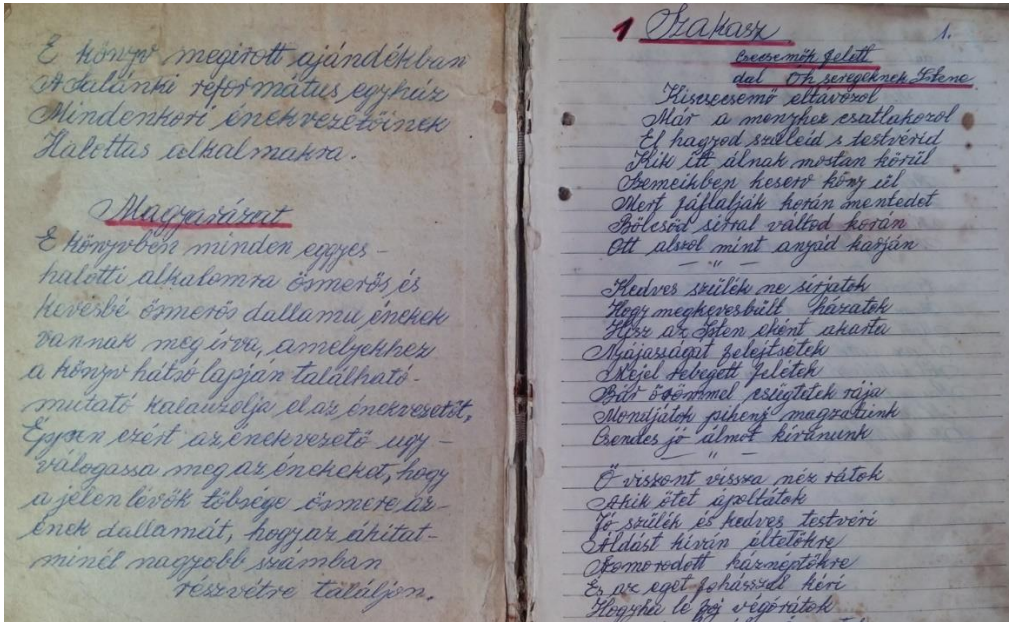 E könyv megirott ajándékban
A Salánki réformátus egyház
Mindenkori énekvezetőinek
Halottas alkalmakra.
Magyarázat
E könyvben minden eggyes-
halotti alkalomra ösmerős és
kevésbé ösmerős dallamu énekek
vannak megirva, amelyekhez
a könyv hátsó lapján található-
mutató kalauzolja el az énekvezetőt,
Éppen ezért az énekvezető ugy-
válogassa meg az énekeket, hogy
a jelen lévők töbsége ösmere az-
ének dallamát, hogy az áhitat-
minél nagyobb számban
részvétre találjon.
1 Szakasz 1.
Csecsemők felett
dal Óh seregeknek Istene
Kiscsecsemő eltávozol
Már a menyhez csatlakozol
El hagyod szüleid s testvérid
Kik itt álnak mostan körül
Szemeikben keserv köny ül
Mert fáflalják korán mentedet
Bölcsőd sirral váltod korán
Ott alszol mint anyád karján
— " —
Kedves szülék ne sirjatok
Hogy megkevesbült házatok
Hisz az Isten eként akarta
Nyájasságát felejtsétek
Mejel rebegett felétek
Bár örömmel csüngtetek rája
Mondjátok pihenj magzatunk
Csendes jó álmot kivánunk
— " —
Ő viszont vissza néz rátok
Akik őtet ápoltátok
Jó szülék és kedves testvéri
Áldást kiván éltetőkre
Somorodott háznéptőkre
És az eget fohásszal kéri
Hogyha le foj végórátok